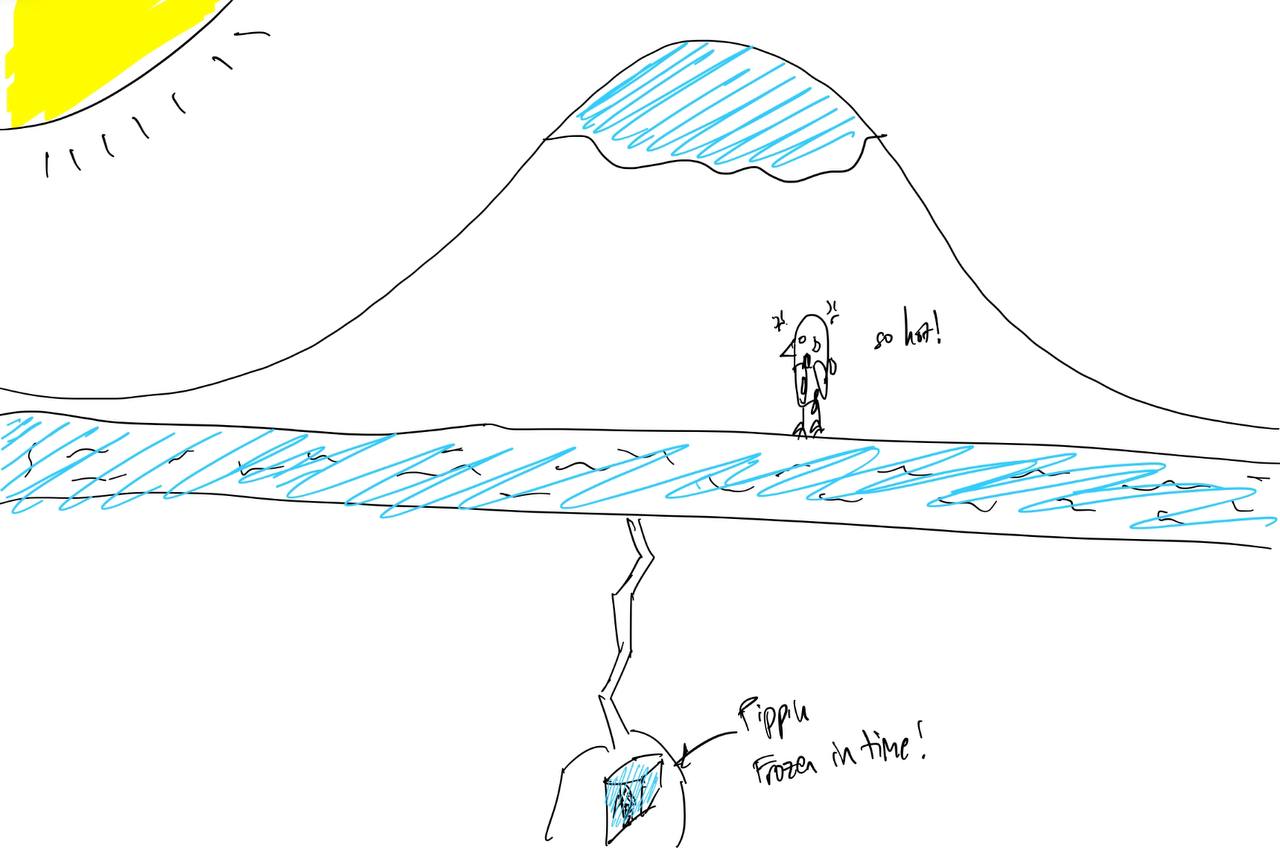 so hot!
Pippin
Frozen in time!